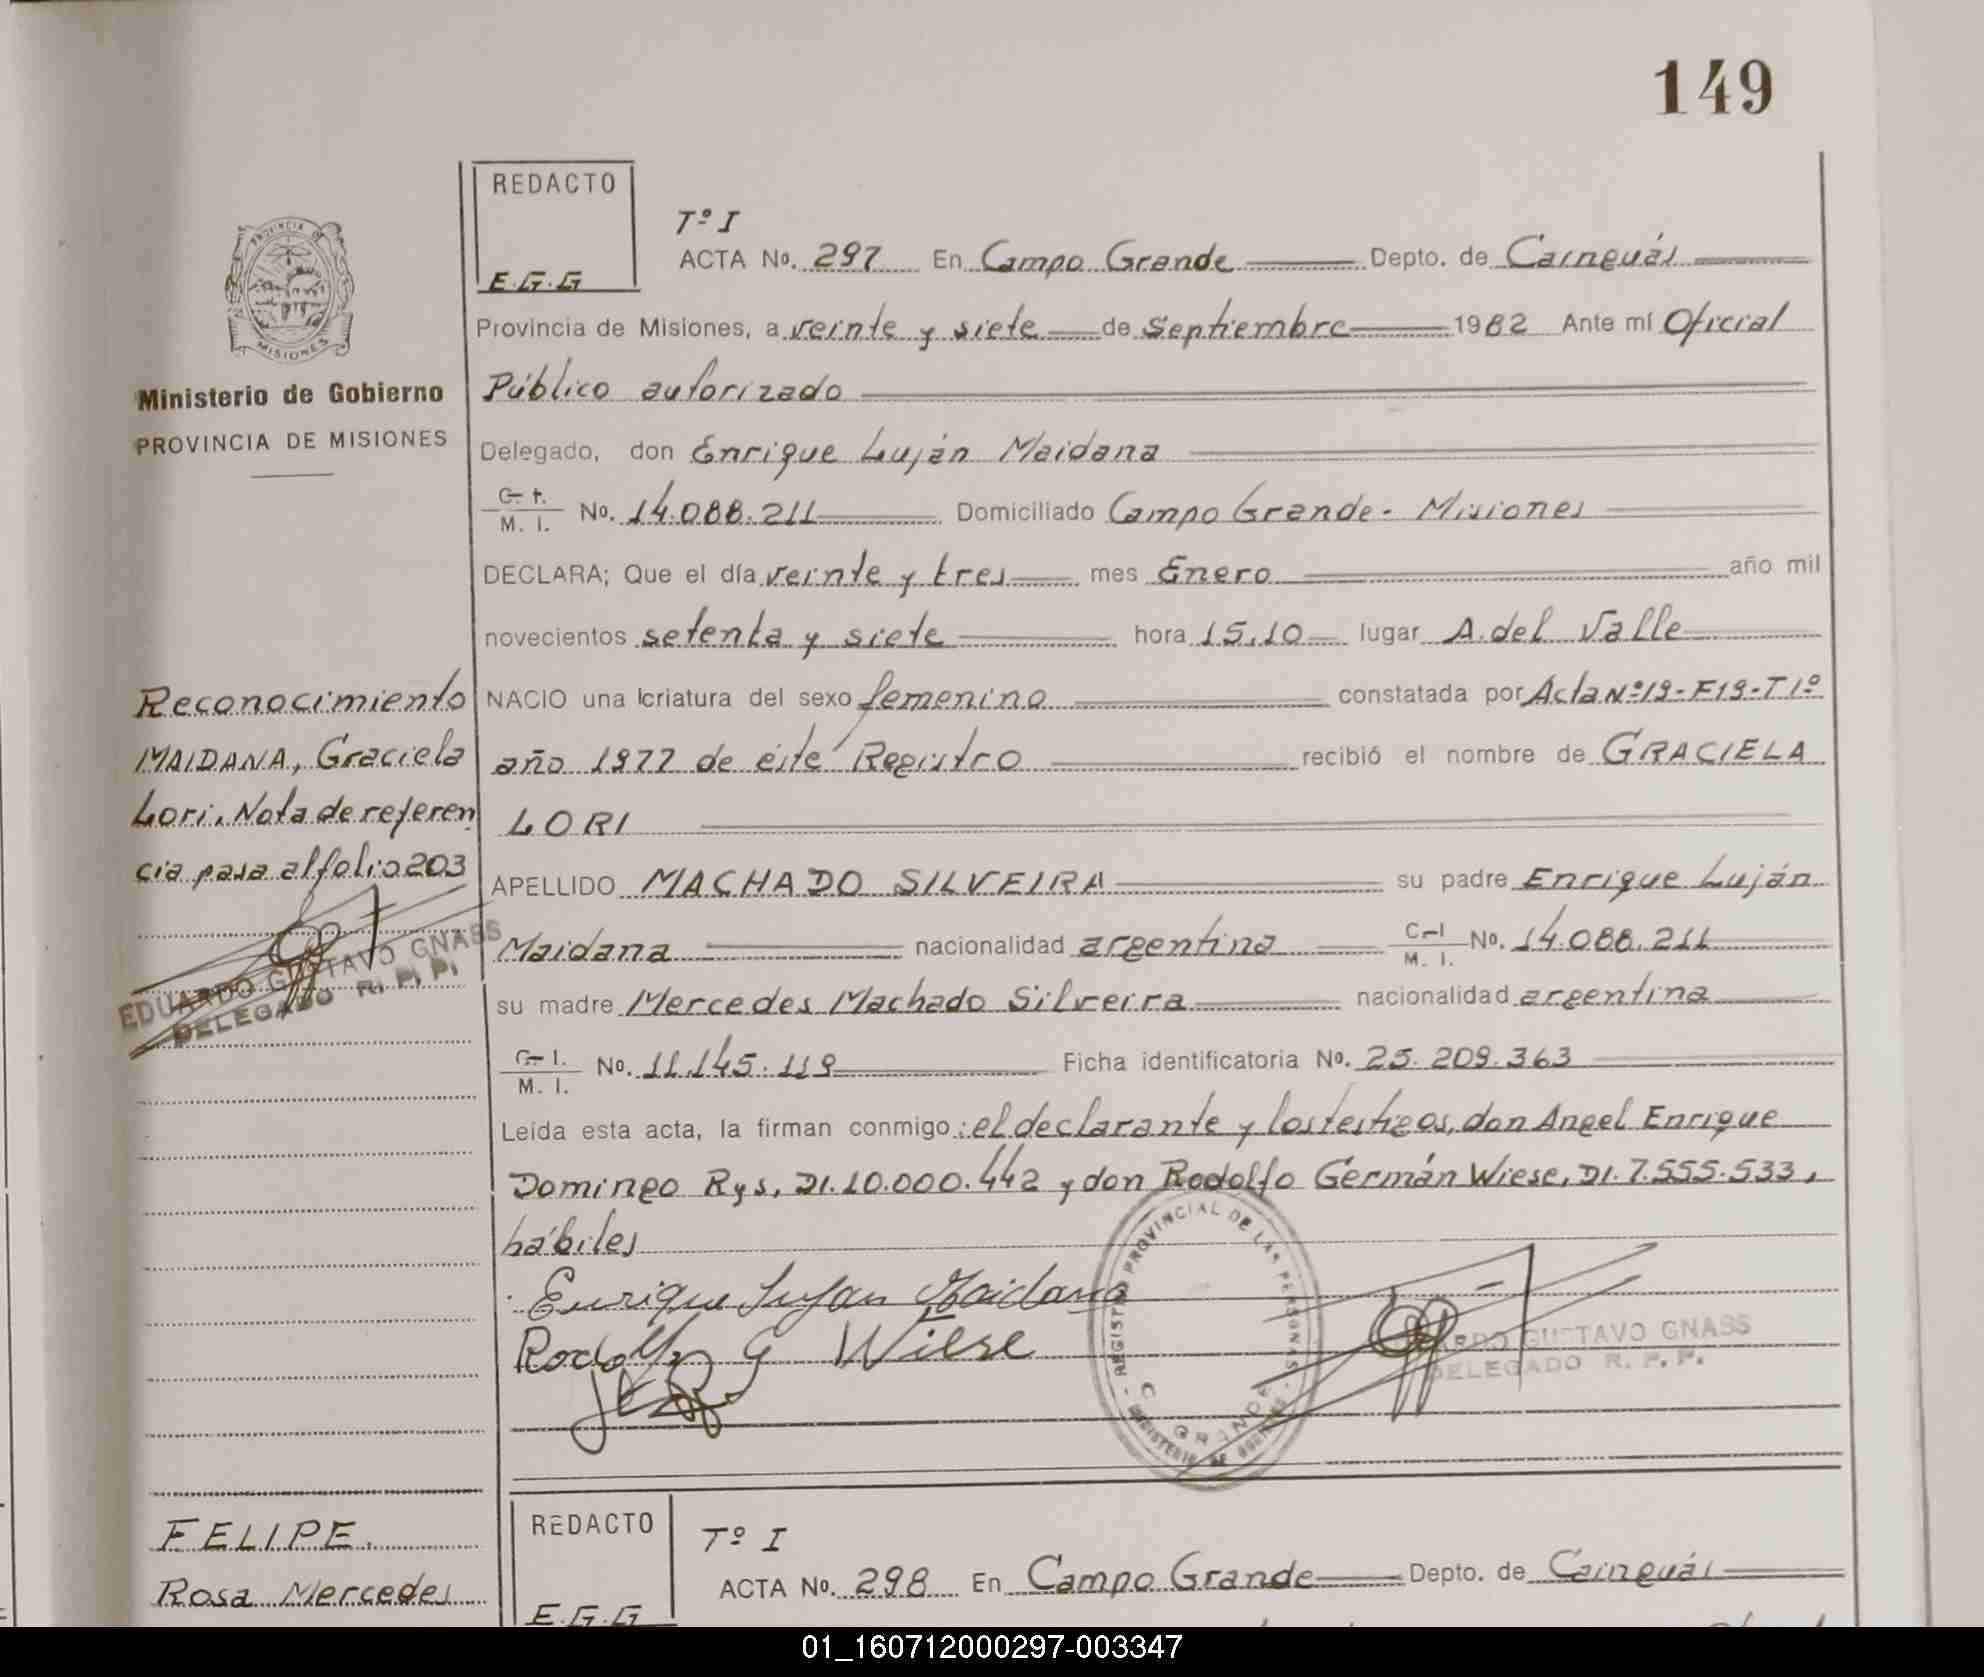 149
REDACTO
E.G.G
Tº I
ACTA No. 297 En Campo Grande Depto. de Cainguás
Provincia de Misiones, a veinte y siete de Septiembre 1982 Ante mí Oficial
Público autorizado
Delegado, don Enrique Luján Maidana
C. I.
M. I.
No. 14.088.211 Domiciliado Campo Grande - Misiones
DECLARA; Que el día veinte y tres mes Enero año mil
novecientos setenta y siete hora 15,10 lugar A. del Valle
NACIO una criatura del sexo femenino constatada por Acta Nº 19-F19-T1º
año 1977 de éste Registro recibió el nombre de GRACIELA
LORI
APELLIDO MACHADO SILVEIRA su padre Enrique Luján
Maidana nacionalidad argentina C-I M. I. No. 14.088.211
su madre Mercedes Machado Silveira nacionalidad argentina
C-I.
M. I.
No. 11.145.119 Ficha identificatoria No. 25.209.363
Leída esta acta, la firman conmigo: el declarante y los testigos, don Angel Enrique
Domingo Rys, DI. 10.000.442 y don Rodolfo Germán Wiese, DI. 7.555.533,
hábiles
Enrique Lujan Maidana
Rodolfo G Wiese
REGISTRO PROVINCIAL DE LAS PERSONAS
C. GRANDE
MINISTERIO DE GOBIERNO
GUSTAVO GNASS
DELEGADO R. P. P.
PROVINCIA DE
MISIONES
Ministerio de Gobierno
PROVINCIA DE MISIONES
Reconocimiento
MAIDANA, Graciela
Lori. Nota de referen
cia pasa al folio 203
EDUARDO GUSTAVO GNASS
DELEGADO R. P. P.
FELIPE.
Rosa Mercedes
REDACTO
E.G.G
Tº I
ACTA No. 298 En Campo Grande Depto. de Cainguás
01_160712000297-003347